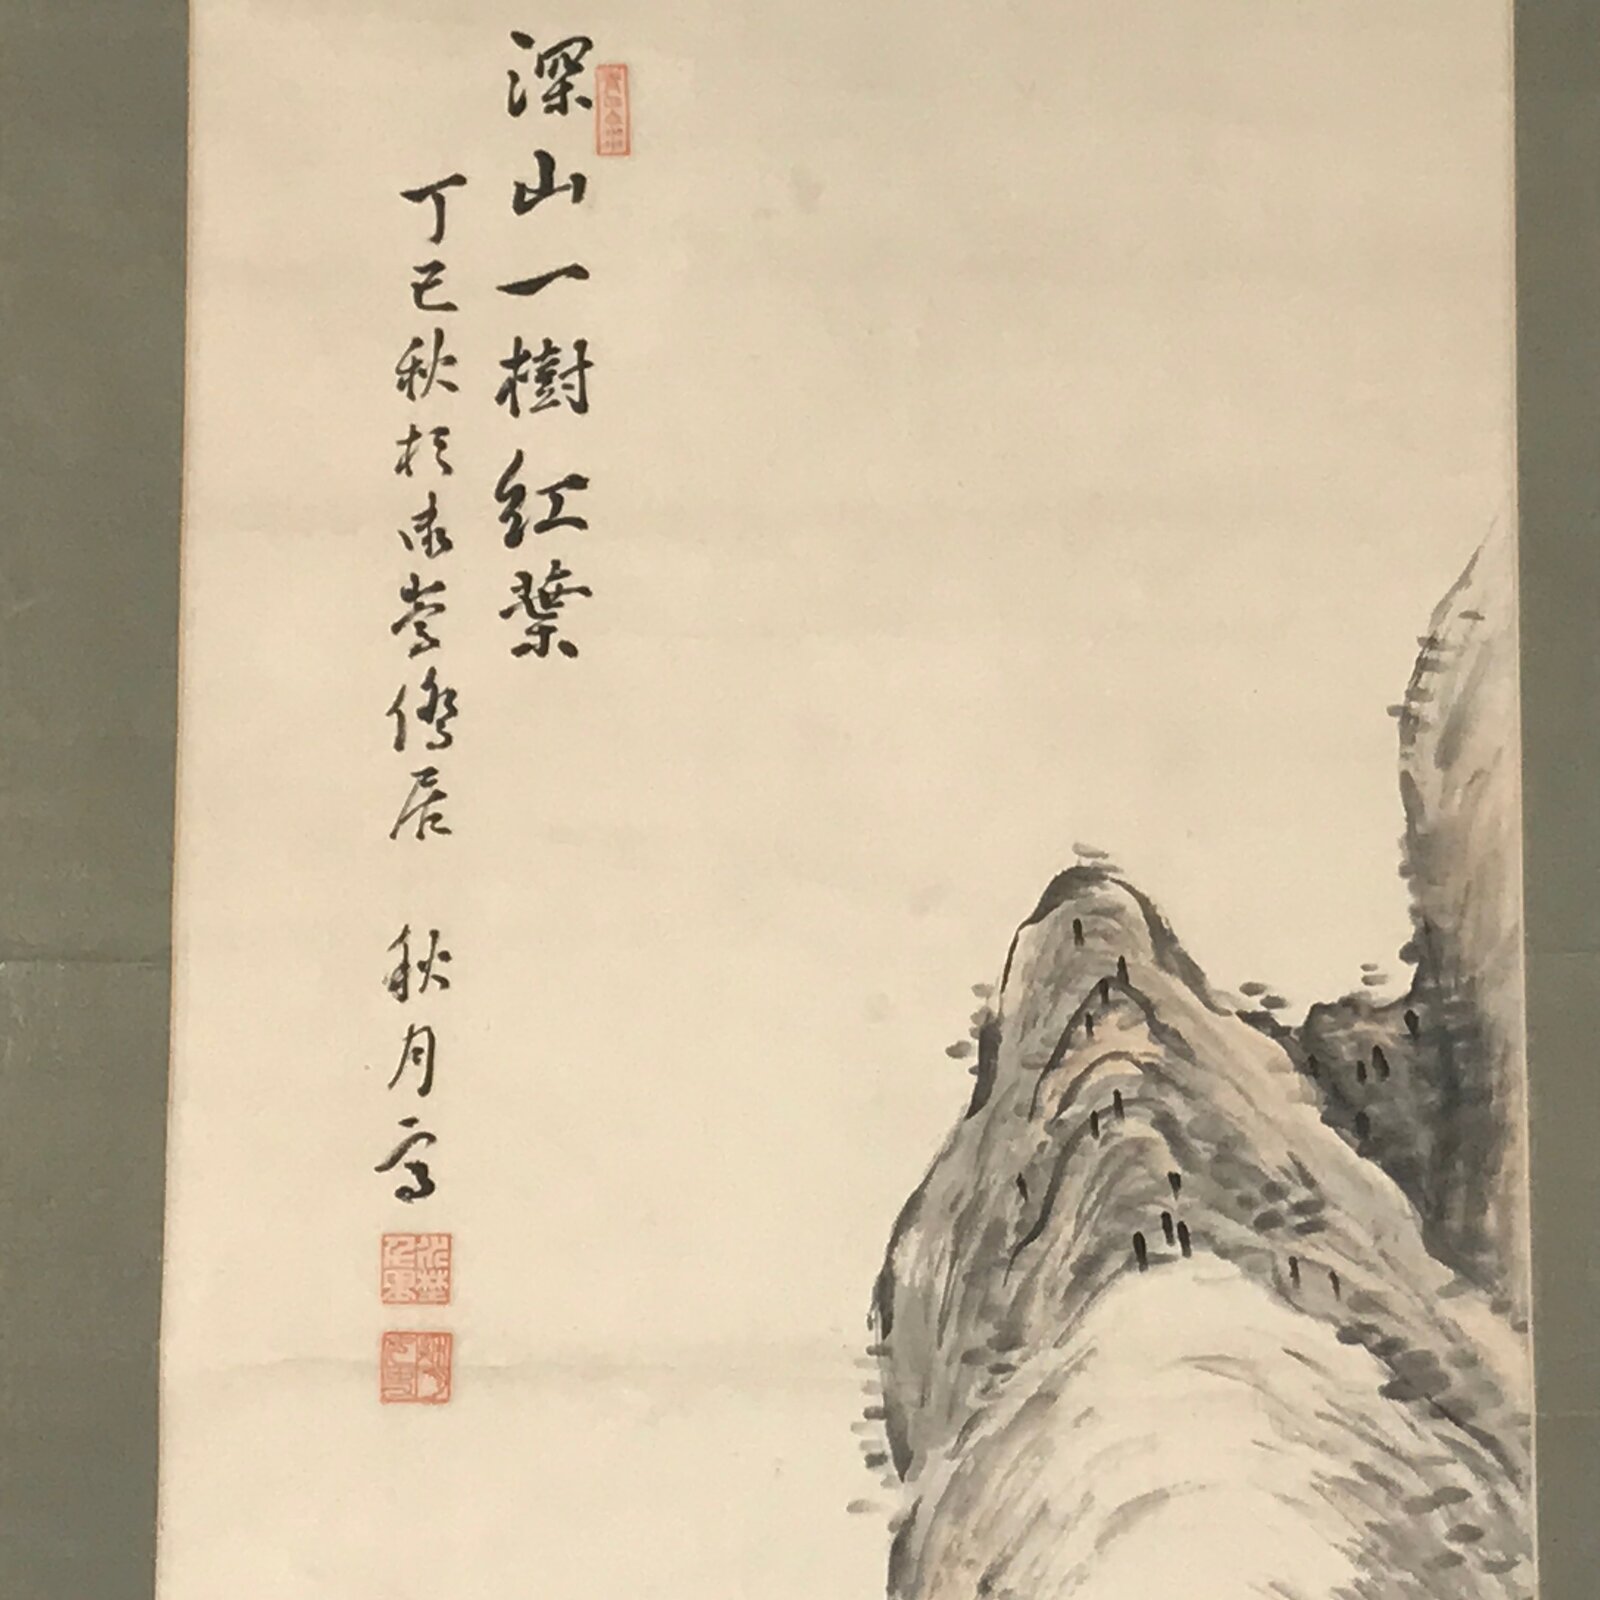 深山一樹紅葉
丁巳秋於嵩僑居 秋月寫